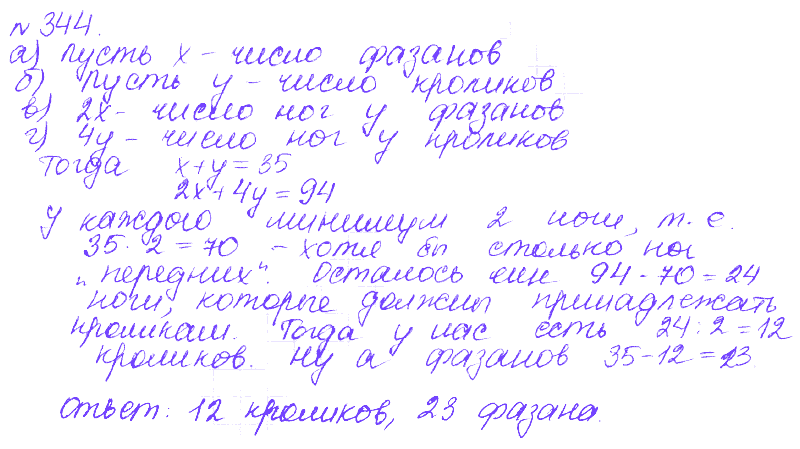 № 344.
а) пусть x - число фазанов
б) пусть y - число кроликов
в) 2x - число ног у фазанов
г) 4y - число ног у кроликов
Тогда x+y=35
2x+4y=94
У каждого минимум 2 ноги, т.е.
35·2=70 - хотя бы столько ног
"передних". Осталось еще 94-70=24
ноги, которые должны принадлежать
кроликам. Тогда у нас есть 24:2=12
кроликов. Ну а фазанов 35-12=23.
Ответ: 12 кроликов, 23 фазана.